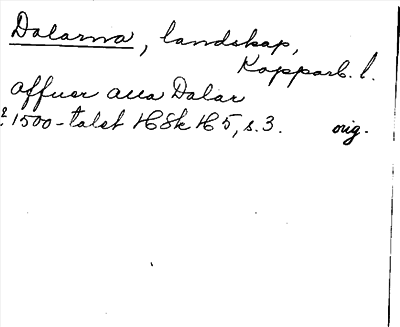 Dalarna, landskap,
Kopparb. l.
offuer alla Dalar
1500-talet HSk H 5, s. 3. orig.